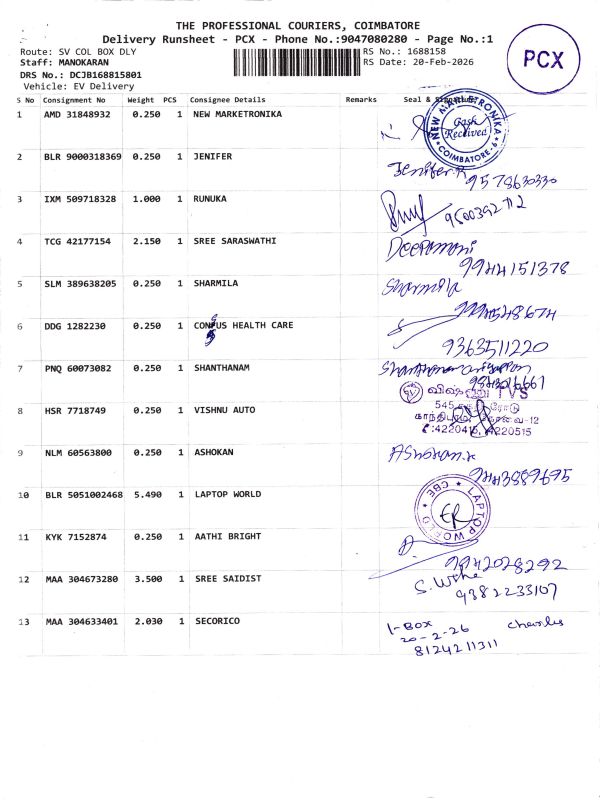 THE PROFESSIONAL COURIERS, COIMBATORE
Delivery Runsheet - PCX - Phone No.:9047080280 - Page No.:1
Route: SV COL BOX DLY
RS No.: 1688158
PCX
Staff: MANOKARAN
RS Date: 20-Feb-2026
DRS No.: DCJB168815801
Vehicle: EV Delivery
S No Consignment No Weight PCS Consignee Details Remarks Seal & Signature
1 AMD 31848932 0.250 1 NEW MARKETRONIKA
NEW MARKETRONIKA
Cash Received
COIMBATORE-6
2 BLR 9000318369 0.250 1 JENIFER
Jenifer.R
9578630330
3 IXM 509718328 1.000 1 RUNUKA
4 TCG 42177154 2.150 1 SREE SARASWATHI
Deepamani
9944151378
5 SLM 389638205 0.250 1 SHARMILA
Sharmila
6 DDG 1282230 0.250 1 CONFUS HEALTH CARE
9363511220
7 PNQ 60073082 0.250 1 SHANTHANAM
8 HSR 7718749 0.250 1 VISHNU AUTO
விஷ்ணு TVS
545,
ரோடு
கோவை-12
4220515
9 NLM 60563800 0.250 1 ASHOKAN
Ashokan.K
9443889695
10 BLR 5051002468 5.490 1 LAPTOP WORLD
LAPTOP WORLD
CBE
11 KYK 7152874 0.250 1 AATHI BRIGHT
9842028292
12 MAA 304673280 3.500 1 SREE SAIDIST
9382233107
13 MAA 304633401 2.030 1 SECORICO
1-Box
Charles
20-2-26
8124211311